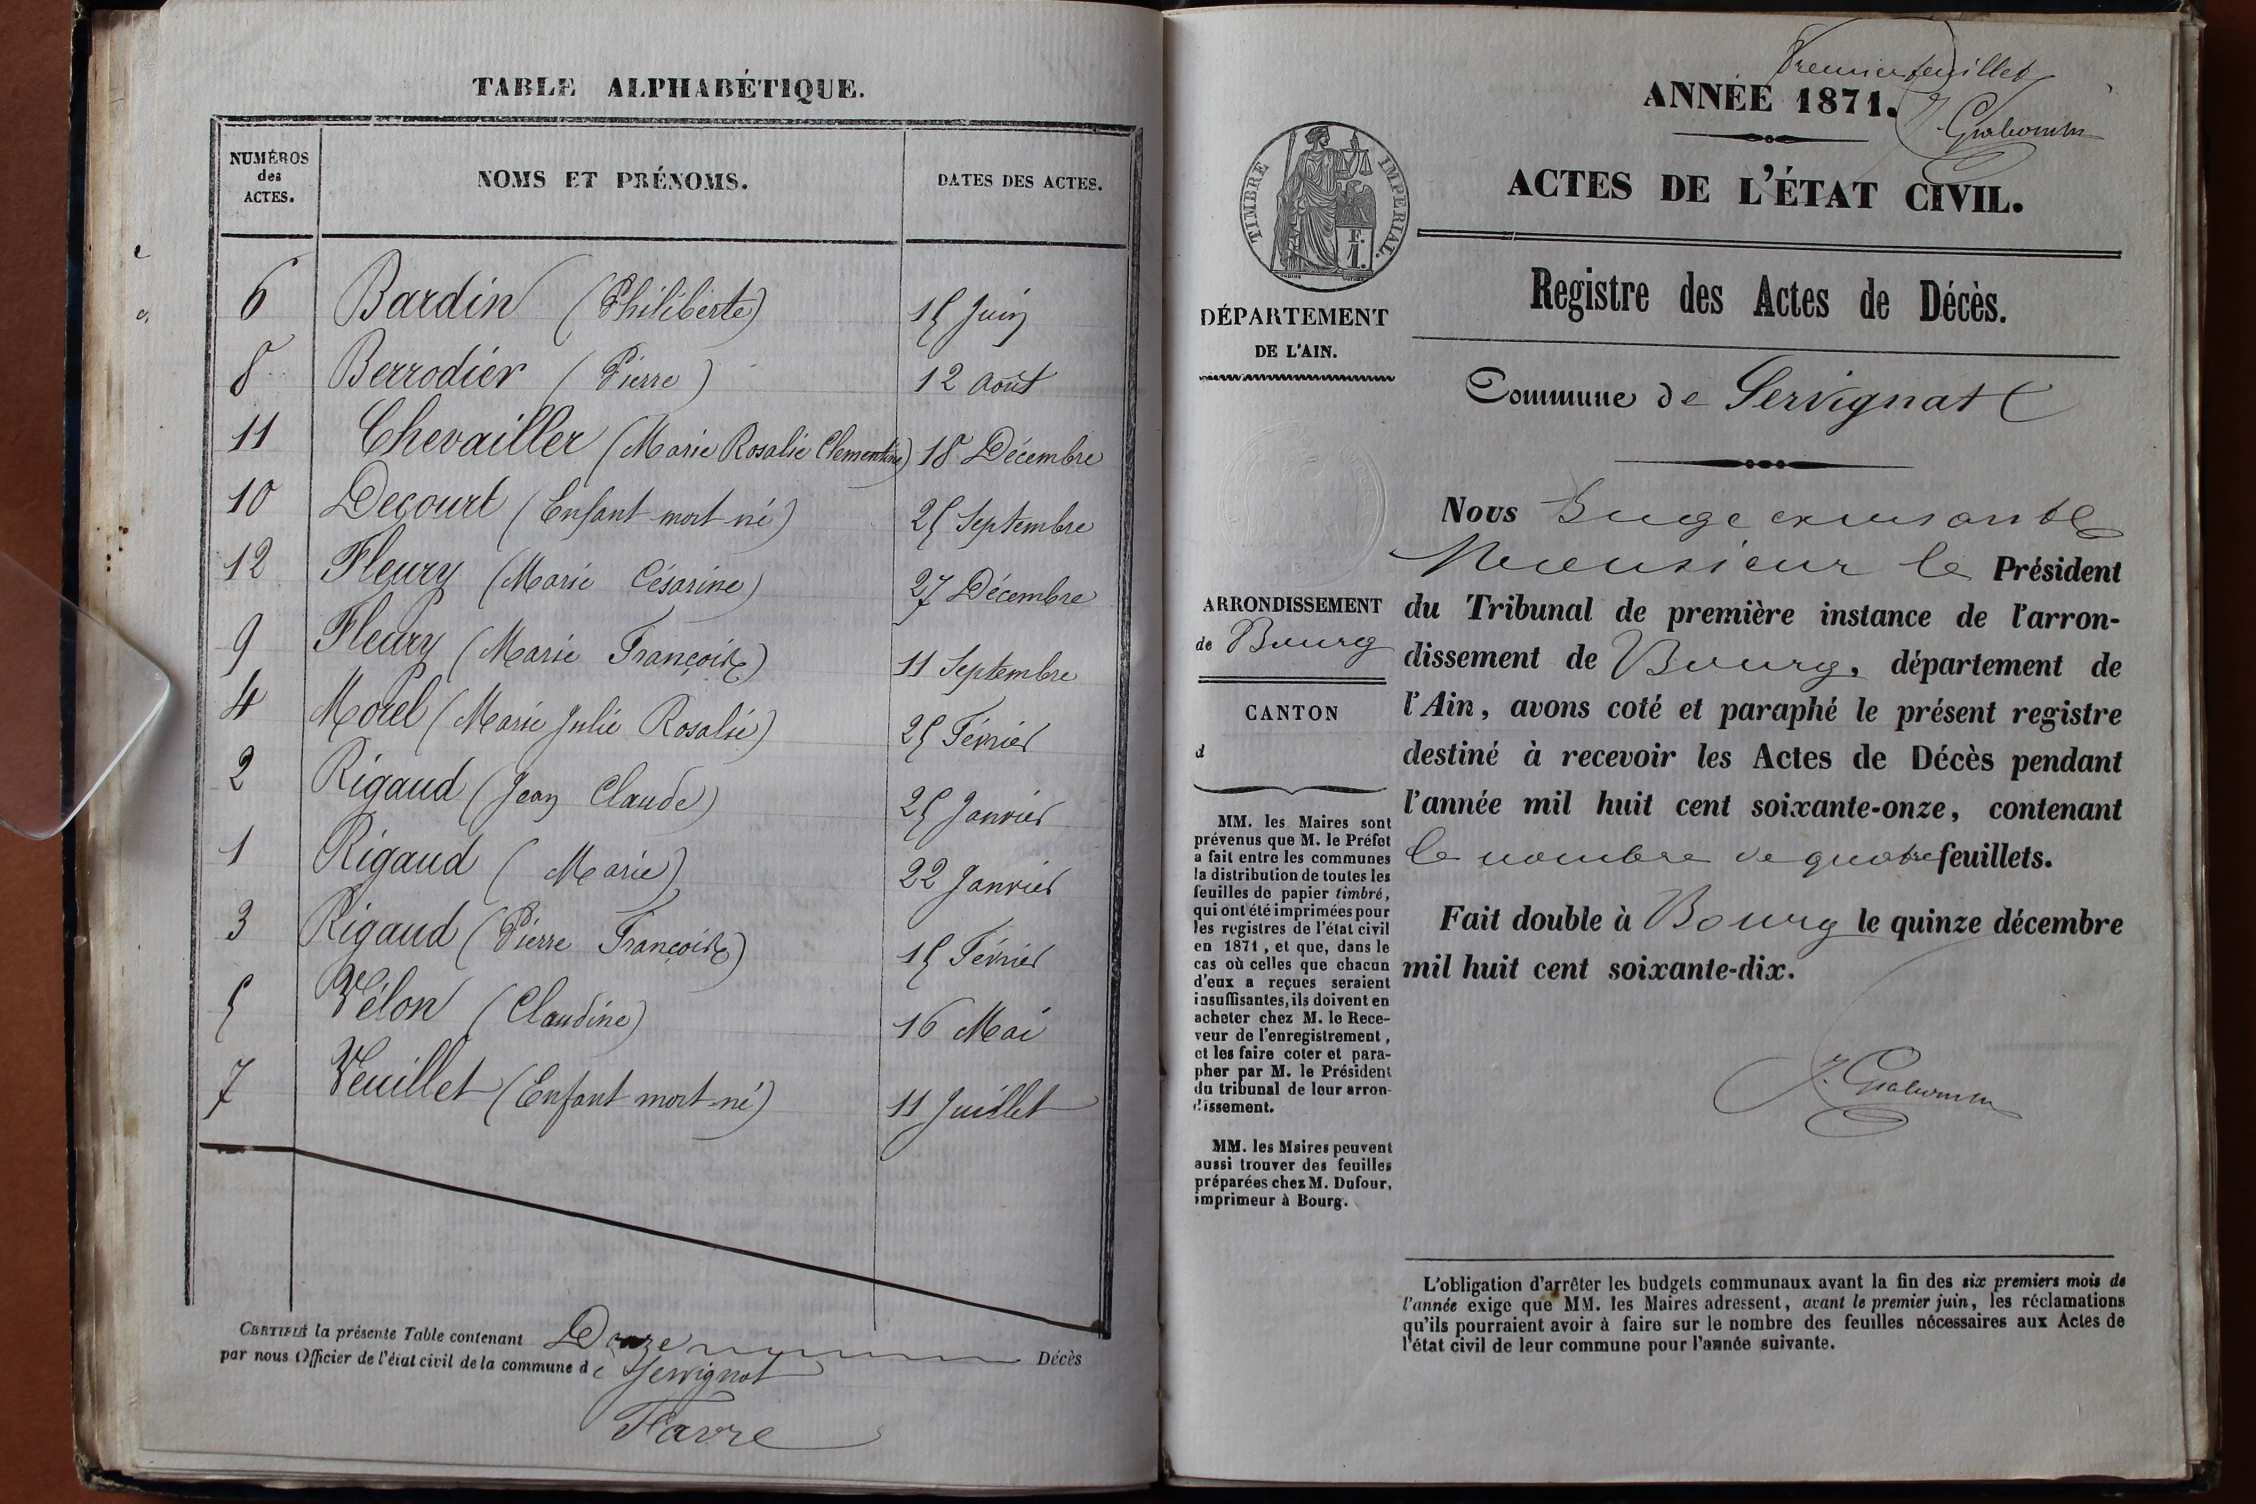 TABLE ALPHABÉTIQUE.
NUMÉROS
des
ACTES.
NOMS ET PRÉNOMS.
DATES DES ACTES.
6 Bardin (Philiberte) 15 Juin
8 Berrodier (Pierre) 12 août
11 Chevailler (Marie Rosalie Clementine) 18 Décembre
10 Decourt (Enfant mort-né) 25 Septembre
12 Fleury (Marie Césarine) 27 Décembre
9 Fleury (Marie Françoise) 11 Septembre
4 Morel (Marie Julie Rosalie) 25 Février
2 Rigaud (Jean Claude) 25 Janvier
1 Rigaud (Marie) 22 Janvier
3 Rigaud (Pierre Françoise) 15 Février
5 Vélon (Claudine) 16 Mai
7 Veuillet (Enfant mort-né) 11 Juillet
CERTIFIÉ la présente Table contenant Douze Décès
par nous Officier de l'état civil de la commune de Servignat
Favre
Premier feuillet
ANNÉE 1871.
ACTES DE L'ÉTAT CIVIL.
TIMBRE IMPERIAL.
F.
1.
Registre des Actes de Décès.
DÉPARTEMENT
DE L'AIN.
Commune de Servignat
ARRONDISSEMENT
de Bourg
CANTON
d
MM. les Maires sont
prévenus que M. le Préfet
a fait entre les communes
la distribution de toutes les
feuilles de papier timbré,
qui ont été imprimées pour
les registres de l'état civil
en 1871, et que, dans le
cas où celles que chacun
d'eux a reçues seraient
insuffisantes, ils doivent en
acheter chez M. le Rece-
veur de l'enregistrement,
et les faire coter et para-
pher par M. le Président
du tribunal de leur arron-
dissement.
MM. les Maires peuvent
aussi trouver des feuilles
préparées chez M. Dufour,
imprimeur à Bourg.
Nous Juge
Monsieur le Président
du Tribunal de première instance de l'arron-
dissement de Bourg, département de
l'Ain, avons coté et paraphé le présent registre
destiné à recevoir les Actes de Décès pendant
l'année mil huit cent soixante-onze, contenant
le nombre de quatre feuillets.
Fait double à Bourg le quinze décembre
mil huit cent soixante-dix.
L'obligation d'arrêter les budgets communaux avant la fin des six premiers mois de
l'année exige que MM. les Maires adressent, avant le premier juin, les réclamations
qu'ils pourraient avoir à faire sur le nombre des feuilles nécessaires aux Actes de
l'état civil de leur commune pour l'année suivante.